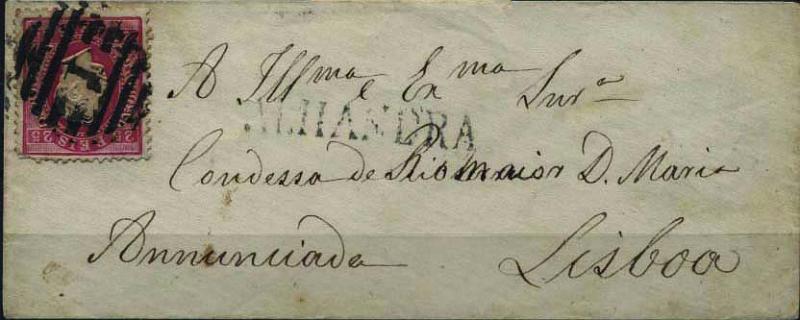 A Illma e Exma Snra
ALHANDRA
Condessa de Rio Maior D. Maria
Annunciada Lisboa
25 REIS 25